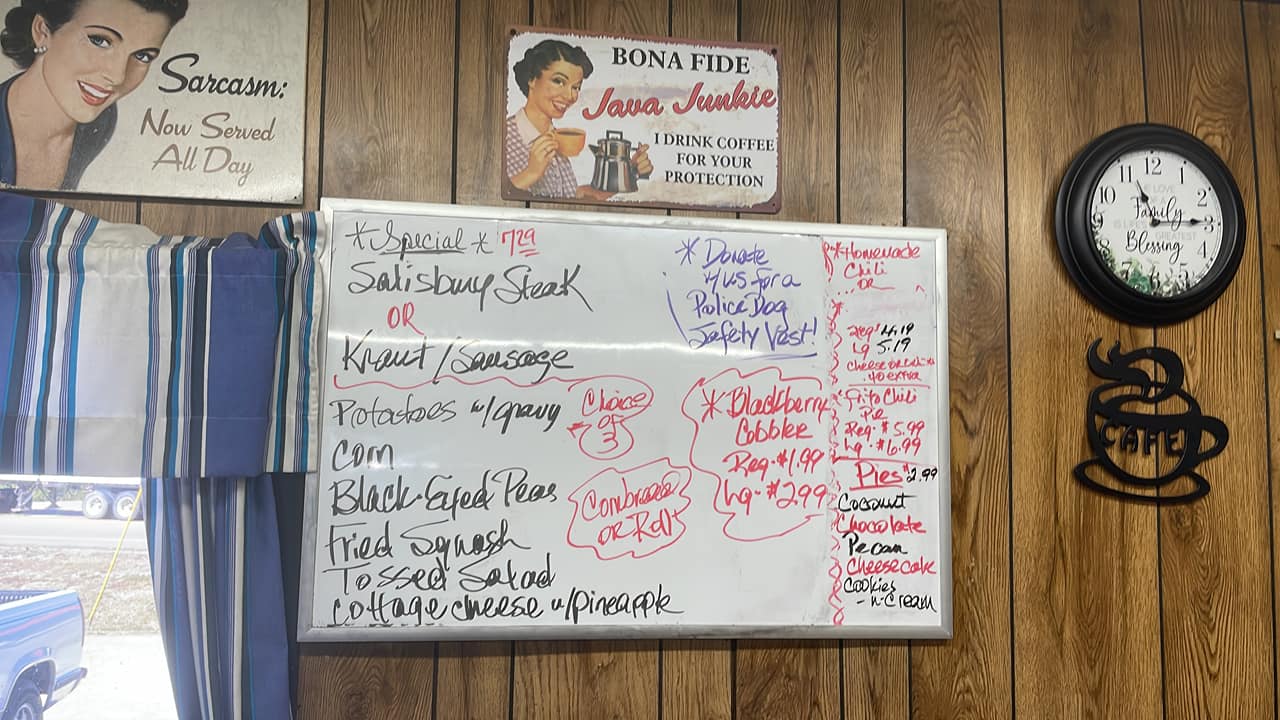 Sarcasm:
Now Served
All Day
BONA FIDE
Java Junkie
I DRINK COFFEE
FOR YOUR
PROTECTION
* Special * 7.29
Salisbury Steak
OR
Kraut/Sausage
Potatoes w/gravy
Corn
Black-Eyed Peas
Fried Squash
Tossed Salad
Cottage cheese w/pineapple
Choice
of
3
Cornbread
OR Roll
* Donate
for a
Police Dog
Safety Vest!
* Blackberry
Cobbler
Reg. $1.99
Lg. $2.99
* Homemade
Chili
OR
*
Reg 4.19
Lg 5.19
cheese
.40 extra
Frito Chili
Pie
Reg. $5.99
Lg. $6.99
Pies $2.99
Coconut
Chocolate
Pecan
Cheesecake
Cookies
-n-Cream
10 11 12 1 2 3 4 5 6 7 9
Family
Blessing
CAFE